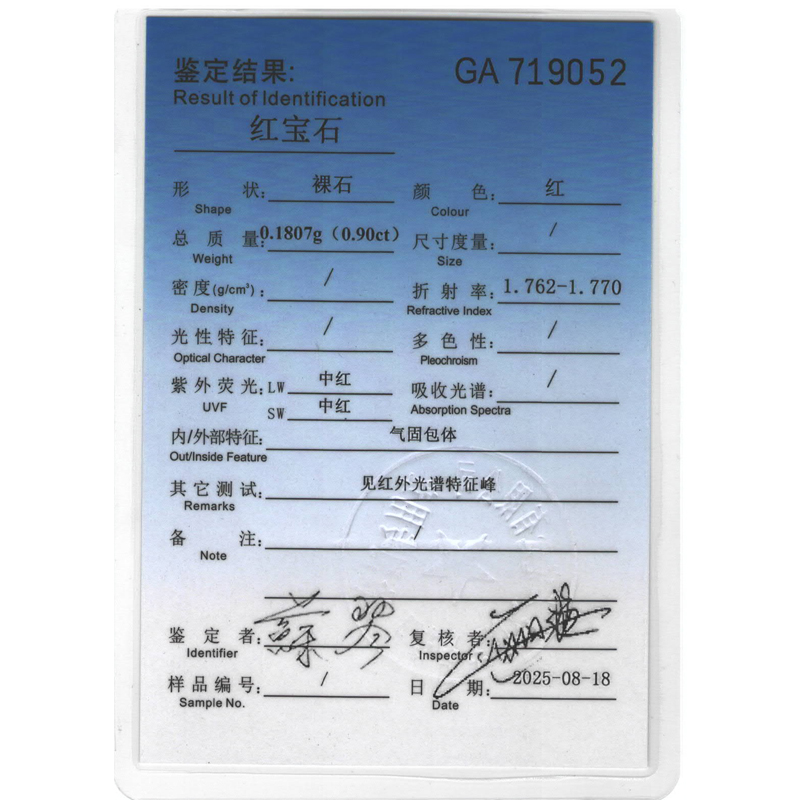 鉴定结果: GA 719052
Result of Identification
红宝石
形 状: 裸石 颜 色: 红
Shape Colour
总 质 量: 0.1807g（0.90ct） 尺寸度量: /
Weight Size
密度(g/cm³): / 折 射 率: 1.762-1.770
Density Refractive Index
光性特征: / 多 色 性: /
Optical Character Pleochroism
紫外荧光: LW 中红 吸收光谱: /
UVF SW 中红 Absorption Spectra
内/外部特征: 气固包体
Out/Inside Feature
其它测试: 见红外光谱特征峰
Remarks
备 注: /
Note
鉴 定 者: 复 核 者:
Identifier Inspector
样品编号: / 日 期: 2025-08-18
Sample No. Date